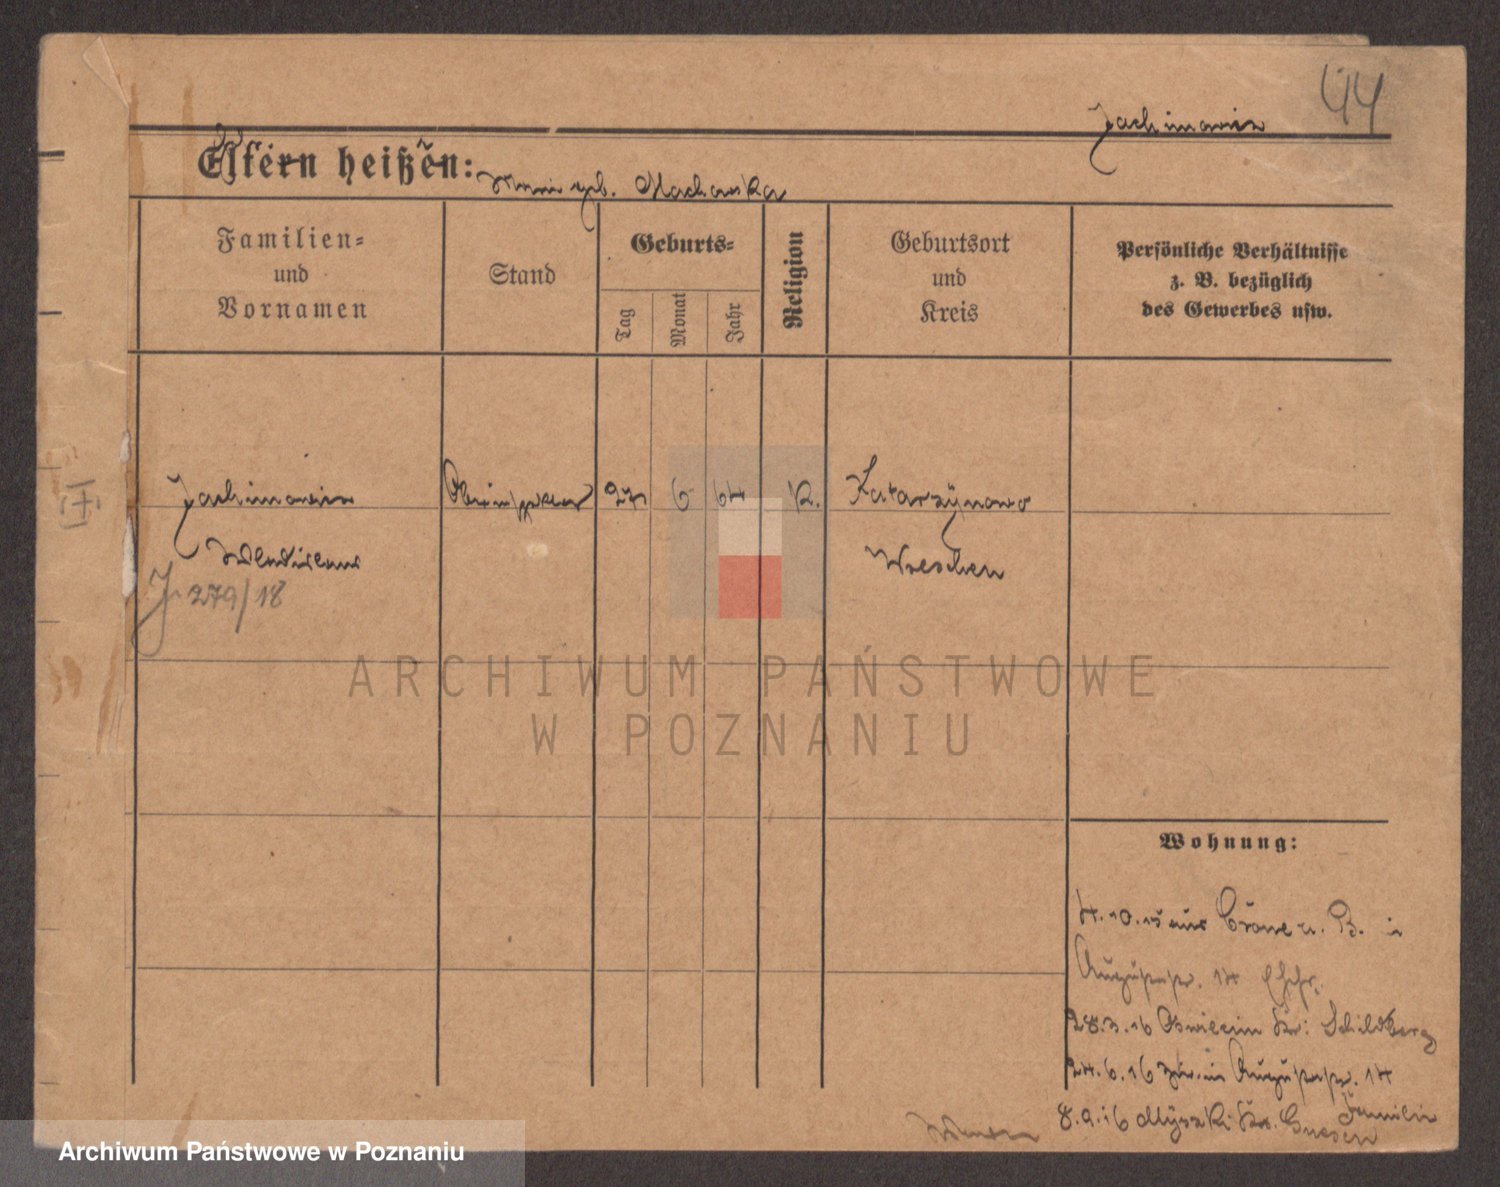 44
Jachimowicz
Eltern heißen:
geb. Machowska
Familien-
und
Vornamen
Stand
Geburts-
Tag
Monat
Jahr
Religion
Geburtsort
und
Kreis
Persönliche Verhältnisse
z. B. bezüglich
des Gewerbes usw.
Jachimowicz
Oberinspektor
27
6
64
K.
Katarzynowo
Wladislaus
Wreschen
J. 279/18
ARCHIWUM PAŃSTWOWE
W POZNANIU
Wohnung:
4.10.15 aus Crone a. B. in
Augustastr. 14
28.3.16 Kr: Schildberg
24.6.16 zur. in Augustastr. 14
8.9.16 Myszki Kr. Gnesen
Familie
Archiwum Państwowe w Poznaniu